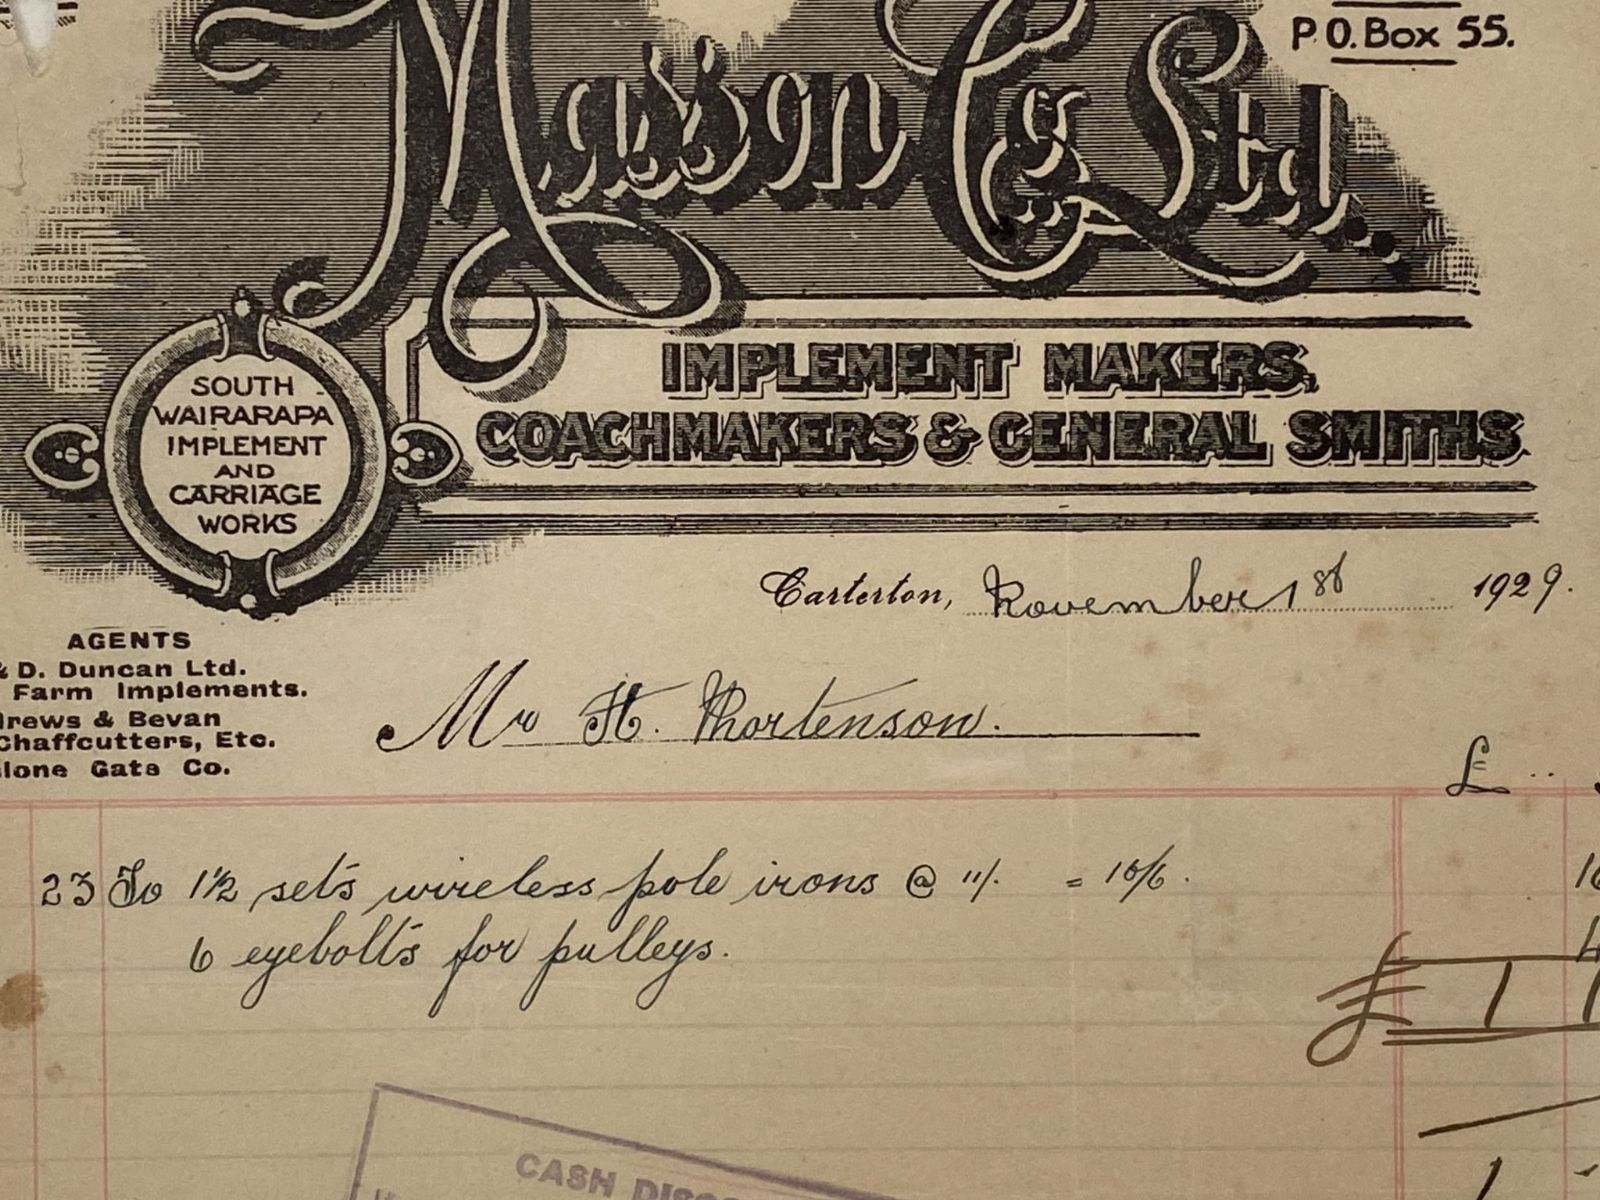 P.O. Box 55.
Masson Co. Ltd.
IMPLEMENT MAKERS,
COACHMAKERS & GENERAL SMITHS.
SOUTH
WAIRARAPA
IMPLEMENT
AND
CARRIAGE
WORKS
Carterton, November 1st 1929.
AGENTS
& D. Duncan Ltd.
Farm Implements.
drews & Bevan
Chaffcutters, Etc.
lone Gate Co.
Mr H. Thortenson.
£
23 To 1 1/2 sets wireless pole irons @ 11/. = 16/6. 16
6 eyebolts for pulleys. 4
£ 1 1
CASH DISC
1